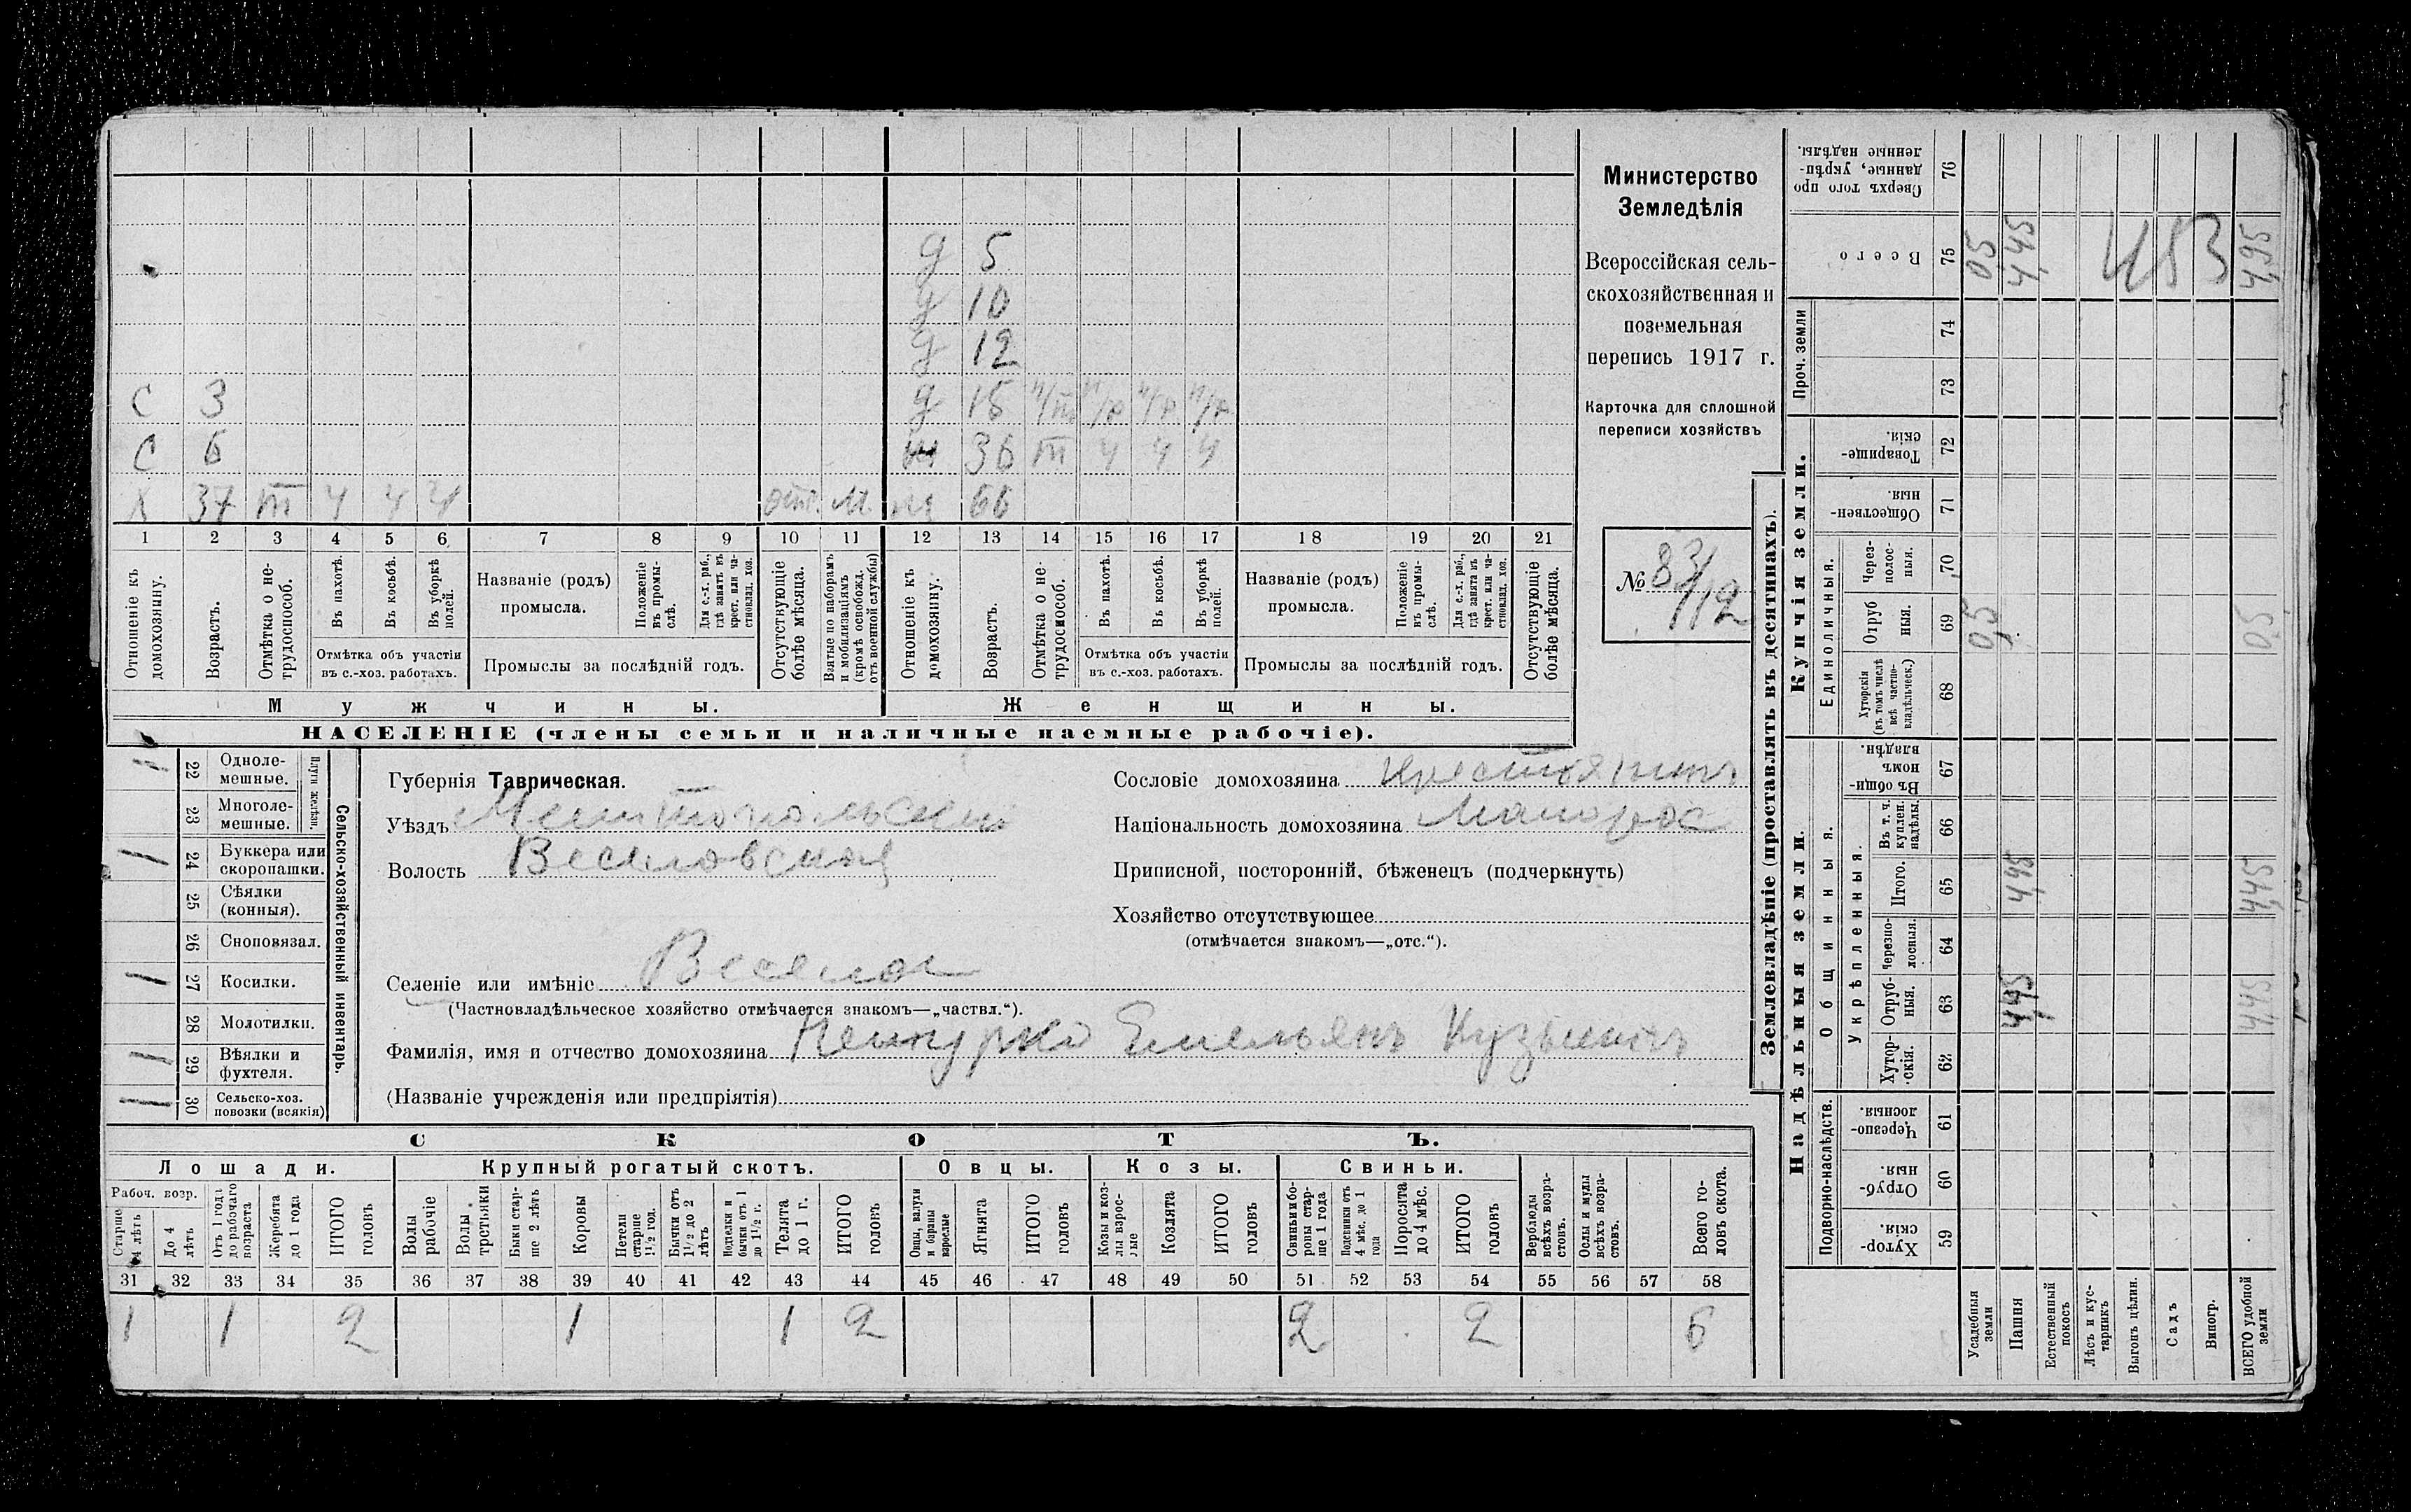 Министерство
Земледѣлія
Всероссійская сель-
скохозяйственная и
поземельная
перепись 1917 г.
Карточка для сплошной
переписи хозяйствъ
№ 83/112
д 5
д 10
д 12
С 3 д 15 н/т н/р н/р н/р
С 6 ж 36 т ч ч ч
Х 37 т ч ч ч отс. М. м 66
1 2 3 4 5 6 7 8 9 10 11 12 13 14 15 16 17 18 19 20 21
Отношеніе къ домохозяину.
Возрастъ.
Отмѣтка о не-трудоспособ.
Въ пахотѣ.
Въ косьбѣ.
Въ уборкѣ полей.
Отмѣтка объ участіи
въ с.-хоз. работахъ.
Названіе (родъ)
промысла.
Положеніе въ промы-слѣ.
Для с.-х. раб., гдѣ занятъ въ крест. или ча-стновлад. хоз.
Промыслы за послѣдній годъ.
Отсутствующіе болѣе мѣсяца.
Взятые по наборамъ и мобилизаціямъ (кромѣ освобожд. отъ военной службы)
Отношеніе къ домохозяину.
Возрастъ.
Отмѣтка о не-трудоспособ.
Въ пахотѣ.
Въ косьбѣ.
Въ уборкѣ полей.
Отмѣтка объ участіи
въ с.-хоз. работахъ.
Названіе (родъ)
промысла.
Положеніе въ промы-слѣ.
Для с.-х. раб., гдѣ занята въ крест. или ча-стновлад. хоз.
Промыслы за послѣдній годъ.
Отсутствующіе болѣе мѣсяца.
Мужчины. Женщины.
НАСЕЛЕНІЕ (члены семьи и наличные наемные рабочіе).
Сельско-хозяйственный инвентарь.
Плуги желѣзн.
11 22 Одноле-мешные.
23 Многоле-мешные.
1 24 Буккера или скоропашки.
25 Сѣялки (конныя).
26 Сноповязал.
1 27 Косилки.
28 Молотилки.
1 29 Вѣялки и фухтеля.
1 30 Сельско-хоз. повозки (всякія)
Губернія Таврическая.
Уѣздъ Мелитопольскій
Волость Веселовская
Селеніе или имѣніе Веселое
(Частновладѣльческое хозяйство отмѣчается знакомъ—„частвл.“).
Фамилія, имя и отчество домохозяина Емельянъ Кузьмичъ
(Названіе учрежденія или предпріятія)
Сословіе домохозяина Крестьянинъ
Національность домохозяина Малорос
Приписной, посторонній, бѣженецъ (подчеркнуть)
Хозяйство отсутствующее
(отмѣчается знакомъ—„отс.“).
СКОТЪ.
Лошади. Крупный рогатый скотъ. Овцы. Козы. Свиньи.
Рабоч. возр.
Старше 4 лѣтъ
До 4 лѣтъ
Отъ 1 года до рабочаго возраста
Жеребята до 1 года
ИТОГО головъ
Волы рабочіе
Волы третьяки
Быки стар-ше 2 лѣтъ
Коровы
Нетели старше 1½ год.
Бычки отъ 1½ до 2 лѣтъ
Подтелки и бычки отъ 1 до 1½ г.
Телята до 1 г.
ИТОГО головъ
Овцы, валухи и бараны взрослые
Ягнята
ИТОГО головъ
Козы и коз-лы взрос-лые
Козлята
ИТОГО головъ
Свиньи и бо-ровы стар-ше 1 года
Подсвинки отъ 4 мѣс. до 1 года
Поросята до 4 мѣс.
ИТОГО головъ
Верблюды всѣхъ возра-стовъ.
Ослы и мулы всѣхъ возра-стовъ.
Всего го-ловъ скота.
31 32 33 34 35 36 37 38 39 40 41 42 43 44 45 46 47 48 49 50 51 52 53 54 55 56 57 58
1 1 2 1 1 2 2 2 6
Землевладѣніе (проставлять въ десятинахъ).
Надѣльныя земли. Купчія земли.
Подворно-наслѣдств. Общинныя. Единоличныя. Проч. земли
Укрѣпленныя.
Хутор-скія. 59
Отруб-ныя. 60
Черезпо-лосныя. 61
Хутор-скія. 62
Отруб-ныя. 63 4,45 4,45
Черезпо-лосныя. 64
Итого. 65 4,45 4,45
Въ т. ч. куплен. надѣлы. 66
Въ общи-номъ владѣн. 67
Хуторскія (въ томъ числѣ всѣ частно-владѣльческ.) 68
Отруб ныя. 69 0,5 0,5
Через-полос-ныя. 70
Обществен-ныя. 71
Товарище-скія. 72
73
74
Всего 75 05 4,45 453 4,95
Сверхъ того про-данные, укрѣп-ленные надѣлы. 76
Усадебныя земли
Пашня
Естественный покосъ
Лѣсъ и кус-тарникъ
Выгонъ цѣлин.
Садъ
Виногр.
ВСЕГО удобной земли